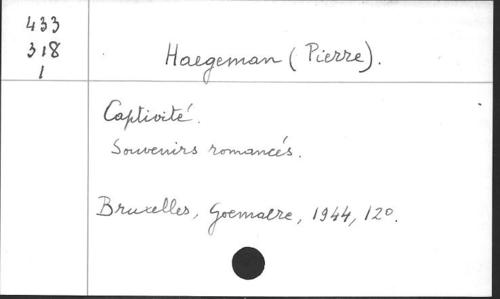 433
318
1
Haegeman (Pierre).
Captivité.
Souvenirs romancés.
Bruxelles, Goemaere, 1944, 12º.